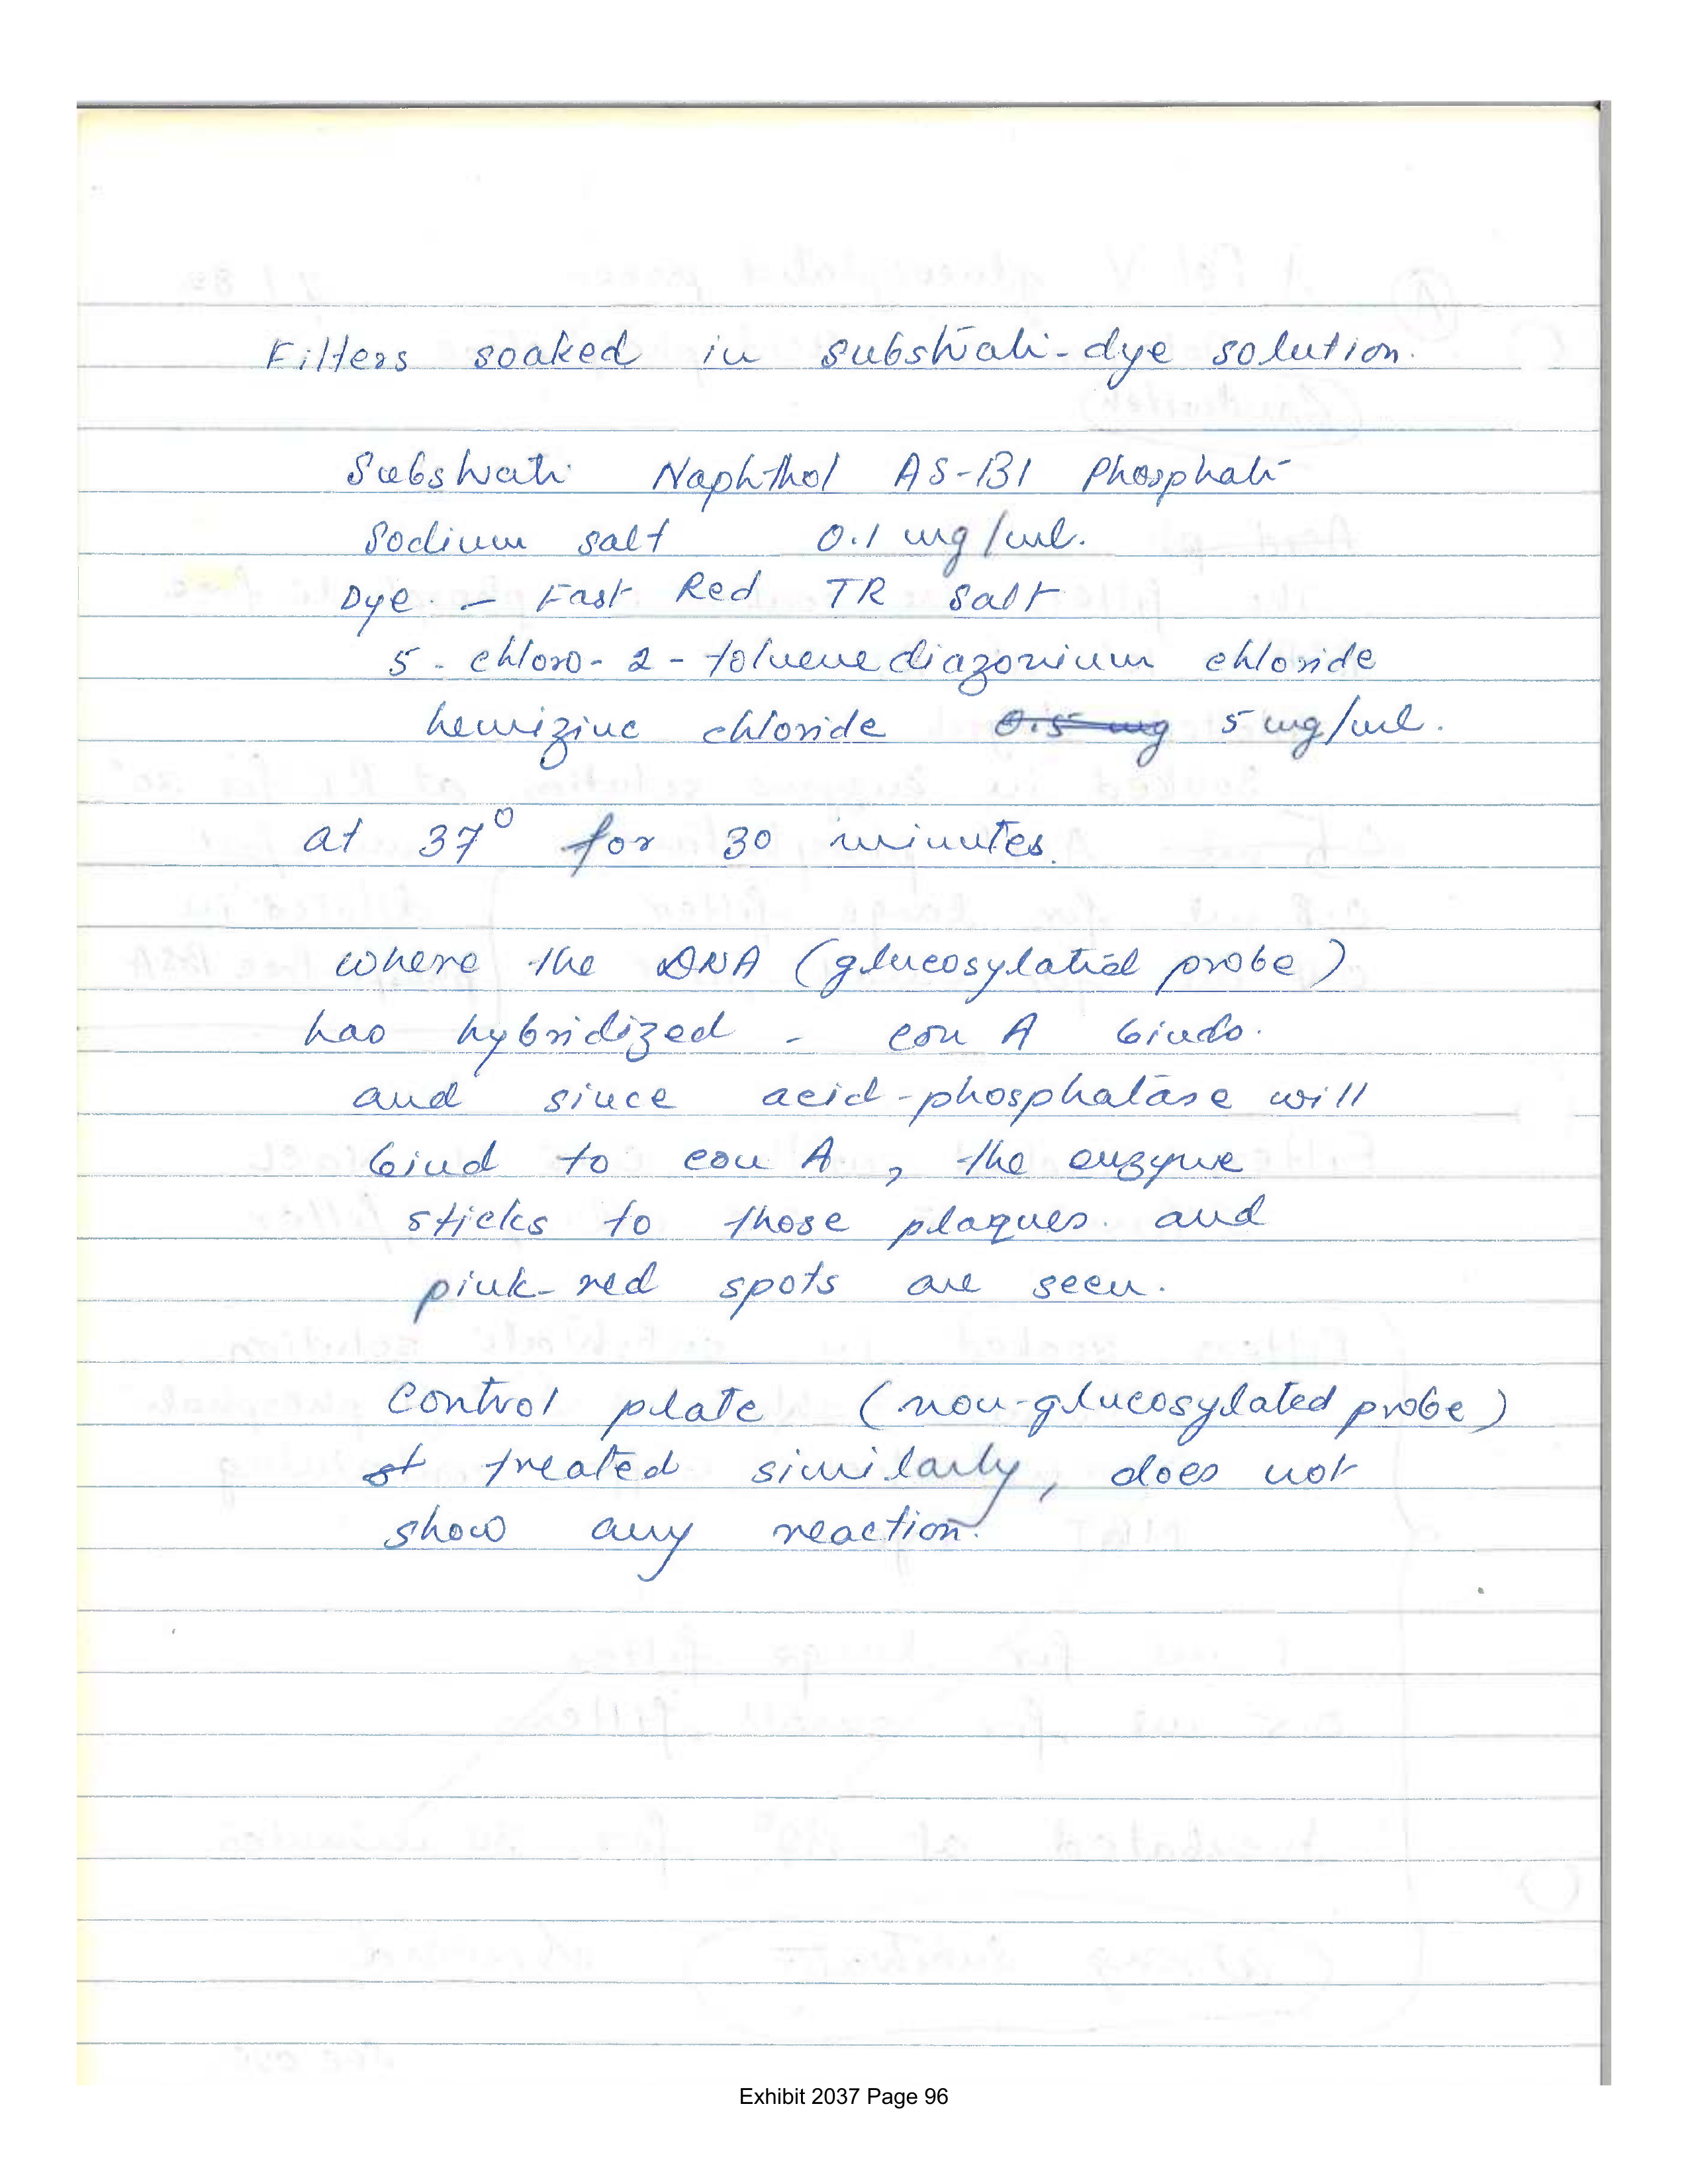 Filters soaked in substrate-dye solution.
Substrate Naphthol AS-BI Phosphate
Sodium salt 0.1 mg/ml.
Dye - Fast Red TR salt
5-chloro-2-toluenediazonium chloride
hemizinc chloride 0.5 mg 5 mg/ml.
at 37° for 30 minutes.
where the DNA (glucosylated probe)
has hybridized - con A binds.
and since acid-phosphatase will
bind to con A, the enzyme
sticks to those plaques. and
pink-red spots are seen.
Control plate (non-glucosylated probe)
st treated similarly, does not
show any reaction.
Exhibit 2037 Page 96